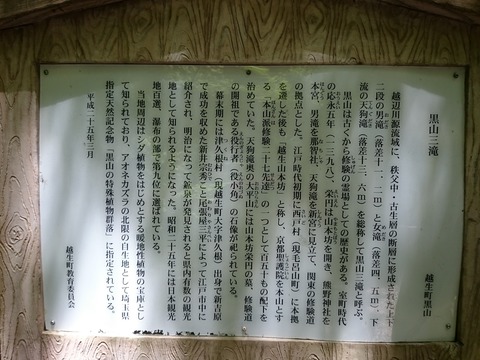 黒山三滝
越生町黒山
越辺川源流域に、秩父中・古生層の断層に形成された上下
二段の男滝（落差十一．二ｍ）と女滝（落差四．五ｍ）、下
流の天狗滝（落差十三．六ｍ）を総称して黒山三滝と呼ぶ。
黒山は古くから修験の霊場としての歴史がある。室町時代
の応永五年（一三九八）、栄円は山本坊を開き、熊野神社を
本宮、男滝を那智社、天狗滝を新宮に見立て、関東の修験道
の拠点とした。江戸時代初期に西戸村（現毛呂山町）に本拠
を遷した後も「越生山本坊」と称し、京都聖護院を本山とす
る「本山派修験二十七先達」の一つとして百五十もの配下を
治めていた。天狗滝奥の大平山には山本坊栄円の墓、修験道
の開祖である役行者（役小角）の石像が祀られている。
幕末期には津久根村（現越生町大字津久根）出身で新吉原
で成功を収めた新井珍秀こと尾張屋三平によって江戸市中に
紹介され、明治になって鉱泉が発見されると県内有数の観光
地として知られるようになった。昭和二十五年には日本観光
地百選、瀑布の部で第九位に選ばれている。
当地周辺はシダ植物をはじめとする暖地性植物の宝庫とし
て知られており、アオネカズラの北限の自生地として埼玉県
指定天然記念物「黒山の特殊植物群落」に指定されている。
平成二十五年三月
越生町教育委員会